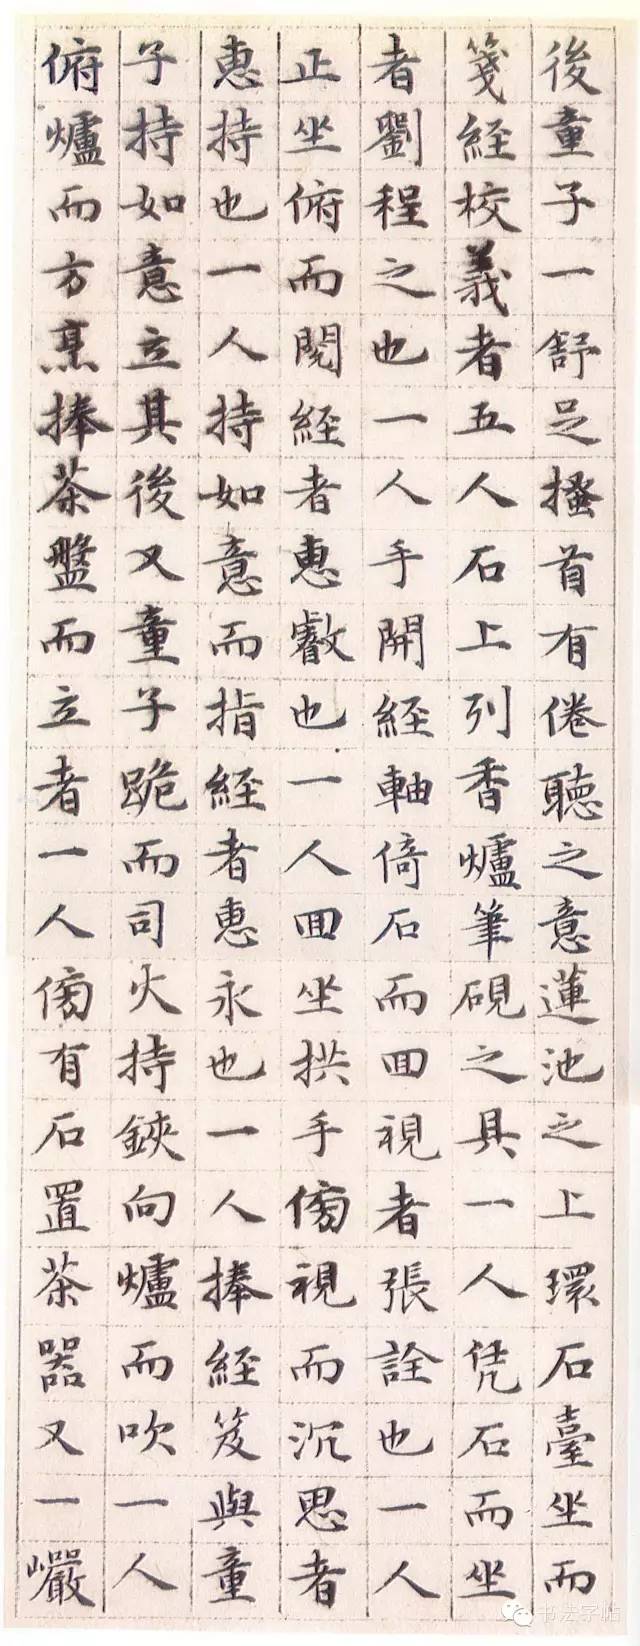 後童子一舒足搔首有倦聽之意蓮池之上環石臺坐而
箋經校義者五人石上列香爐筆硯之具一人凭石而坐
者劉程之也一人手開經軸倚石而回視者張詮也一人
正坐俯而閱經者惠叡也一人回坐拱手傍視而沉思者
惠持也一人持如意而指經者惠永也一人捧經笈與童
子持如意立其後又童子跪而司火持鋏向爐而吹一人
俯爐而方烹捧茶盤而立者一人傍有石置茶器又一巖
书法字帖